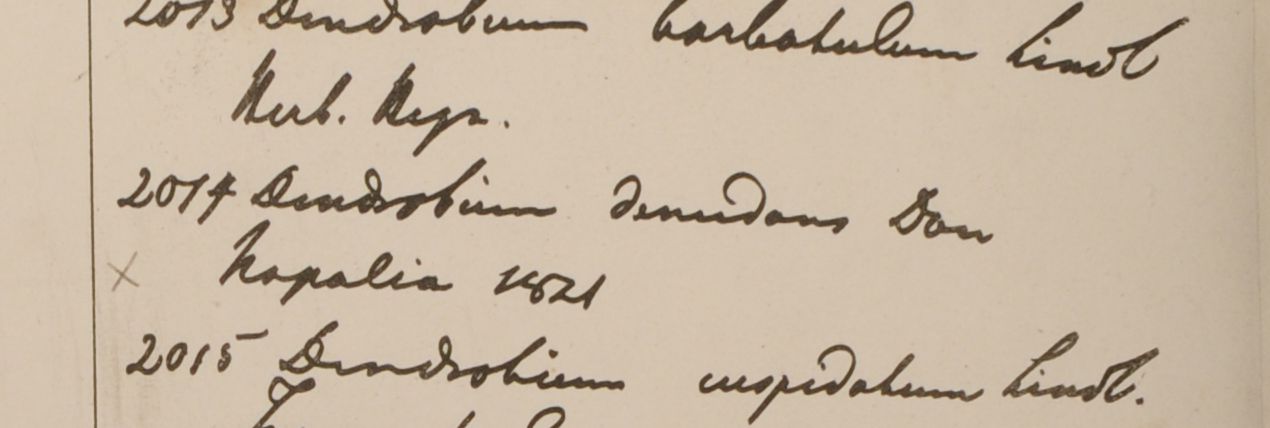 2013 Dendrobium barbatulum Lindl
Herb. Heyn.
2014 Dendrobium denudans Don
Napalia 1821
2015 Dendrobium cuspidatum Lindl.